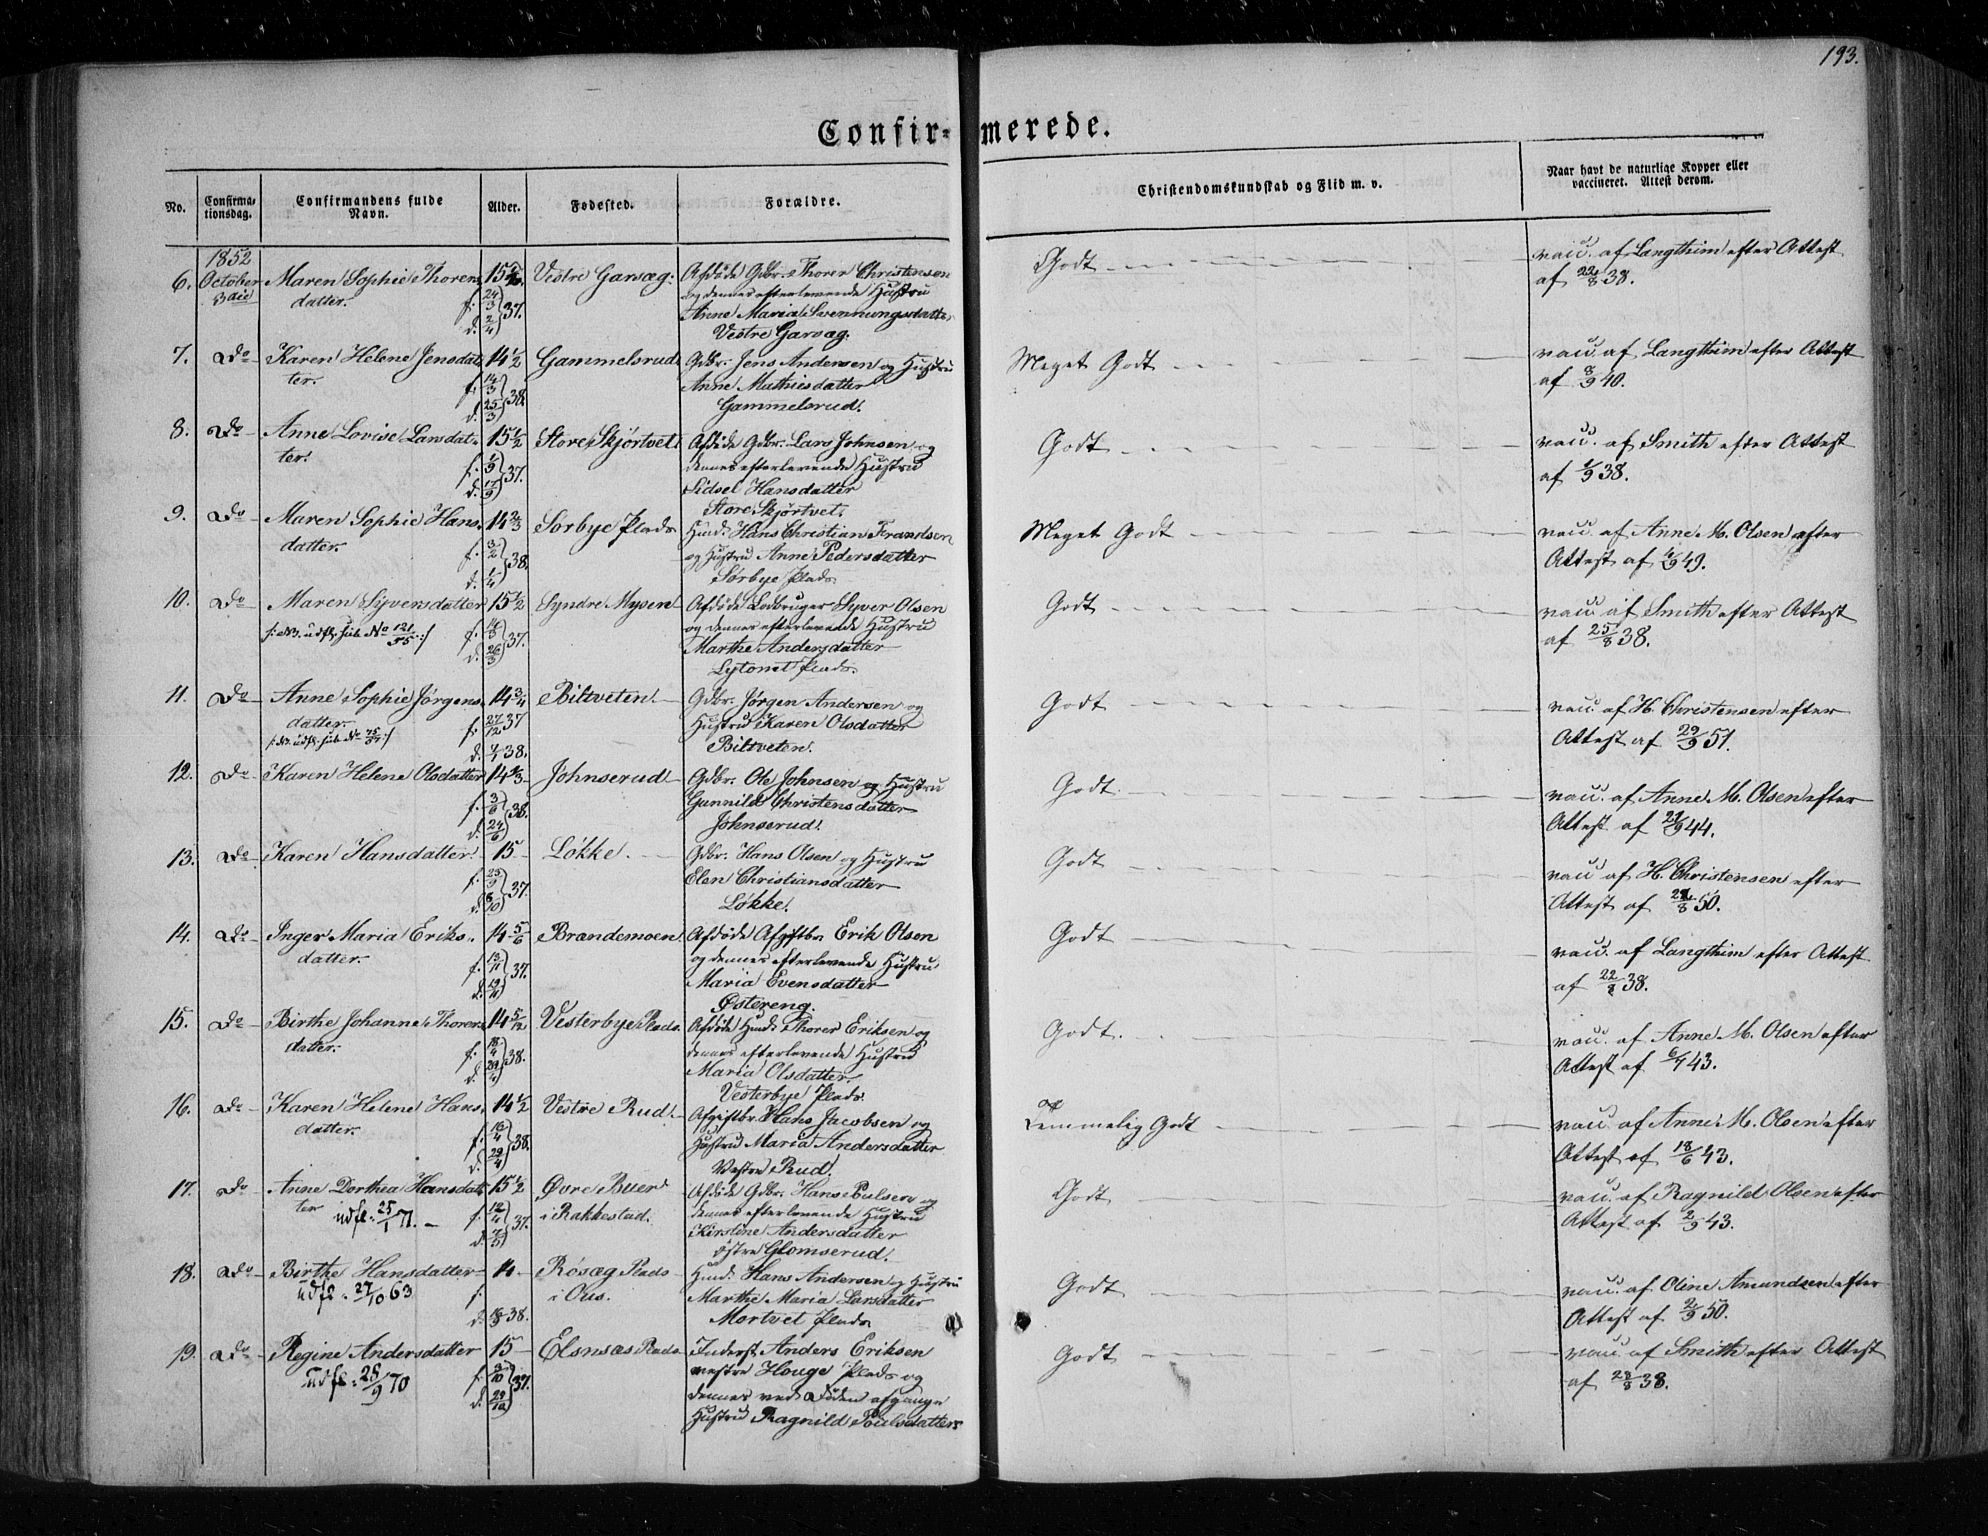 193.
Confirmerede.
No.
Confirmationsdag.
Confirmandens fulde Navn.
Alder.
Fødested.
Forældre.
Christendomskundskab og Flid m. v.
Naar havt de naturlige Kopper eller vaccineret. Attest derom.
1852
6. October 3die Maren Sophie Thorensdatter. 15 f. 24/3 d. 2/4 37. Vestre Garsæg.
Afdøde Gdbr. Thorer Christensen
og dennes efterlevende Hustru
Anne Maria Svennungsdatter
Vestre Garsæg.
Godt
vacc. af Langthim efter Attest
af 22/8 38.
7. Do Karen Helene Jensdatter. 14 1/2 f. 14/3 d. 25/3 38. Gammelsrud.
Gdbr. Jens Andersen og Hustru
Anne Mathiesdatter
Gammelsrud.
Meget Godt
vacc. af Langthim efter Attest
af 8/9 40.
8. Do Anne Lovise Larsdatter. 15 1/2 f. 1/9 d. 17/9 37. Store Skjørtvet.
Afdøde Gdbr. Lars Johnsen og
dennes efterlevende Hustru
Sidsel Hansdatter
Store Skjørtvet.
Godt
vacc. af Smith efter Attest
af 1/9 38.
9. Do Maren Sophie Hansdatter. 14 2/3 f. 3/2 d. 1/4 38. Sorbye Plads
Huusmd. Hans Christian Frandsen
og Hustru Anne Pedersdatter
Sørbye Plads
Meget Godt
vacc. af Anne M. Olsen efter
Attest af 4/9 49.
10. Do Maren Syversdatter 15 1/2 f. 16/3 d. 26/3 37. Syndre Mysen
/: NB. udfl. sub. No 121/55 :/
Afdøde Lodbruger Syver Olsen
og dennes efterlevende Hustru
Marthe Andersdatter
Lytomt Plads.
Godt
vacc. af Smith efter Attest
af 25/8 38.
11. Do Anne Sophie Jørgensdatter. 14 3/4 f. 27/12 37 d. 7/1 38. Biltveten.
/: NB. udfl. sub. No
Gdbr. Jørgen Andersen og
Hustru Karen Olsdatter
Biltveten.
Godt
vacc. af H. Christensen efter
Attest af 29/9 51.
12. Do Karen Helene Olsdatter 14 1/3 f. 3/6 d. 24/6 38. Johnserud
Gdbr. Ole Johnsen og Hustru
Gunnild Christensdatter
Johnserud.
Godt
vacc. af Anne M. Olsen efter
Attest af 21/9 44.
13. Do Karen Hansdatter. 15 f. 25/9 d. 8/10 37. Løkke.
Gdbr. Hans Olsen og Hustru
Elen Christiansdatter
Løkke.
Godt
vacc. af H. Christensen efter
Attest af 50.
14. Do Inger Maria Eriksdatter. 14 5/6 f. 13/11 d. 19/11 37. Brandemoen.
Afdøde Afgiftbr. Erik Olsen
og dennes efterlevende Hustru
Maria Evensdatter
Østereng.
Godt
vacc. af Langthim efter Attest
af 22/8 38.
15. Do Birthe Johanne Thorensdatter. 14 5/12 f. 18/4 d. 29/4 38. Vesterbye Plads.
Afdøde Huusmd. Thorer Eriksen og
dennes efterlevende Hustru
Maria Olsdatter.
Vesterbye Plads.
Godt.
vacc. af Anne M. Olsen efter
Attest af 6/7 43.
16. Do Karen Helene Hansdatter. 14 1/2 f. 16/4 d. 29/4 38. Vestre Rud.
Afgiftbr. Hans Jacobsen og
Hustru Maria Andersdatter
Vestre Rud.
Temmelig Godt
vacc. af Anne M. Olsen efter
Attest af 18/6 43.
17. Do Anne Dorthea Hansdatter 15 1/2 f. 12/4 d. 7/5 37. Øvre Buer i Rakkestad.
udfl. 25/1 71.
Afdøde Gdbr. Hans Poulsen og
dennes efterlevende Hustru
Kirstine Andersdatter
østre Glomserud.
Godt
vacc. af Ragnild Olsen efter
Attest af 2/9 43.
18. Do Birthe Hansdatter 14 f. d. 18/3 38. Røsæg Plads i Ous.
udfl. 27/10 63
Huusmd. Hans Andersen og Hustru
Marthe Maria Larsdatter
Mortvet Plads
Godt
vacc. af Oline Amundsen efter
Attest af 2/9 50.
19. Do Regine Andersdatter 15 f. d. 29/10 37. Elsnæs Plads
udfl. 28/9 70
Inderst Anders Eriksen
vestre Houge Plads og
dennes ved Døden afgangne
Hustru Ragnild Poulsdatter
Godt
vacc. af Smith efter Attest
af 28/8 38.